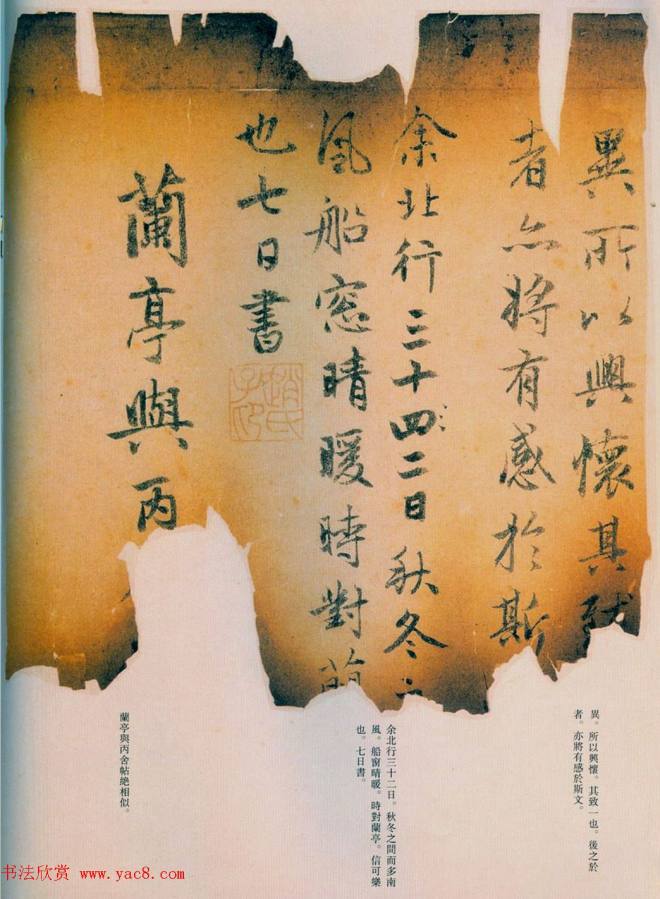 異所以興懷其致
者亦將有感於斯
余北行三十四二日秋冬
風船窓晴暖時對蘭
也七日書
趙氏子昂
蘭亭與丙
異。所以興懷。其致一也。後之於
者。亦將有感於斯文。
余北行三十二日。秋冬之間而多南
風。船窗晴暖。時對蘭亭。信可樂
也。七日書。
蘭亭與丙舍帖絶相似。
书法欣赏 www.yac8.com